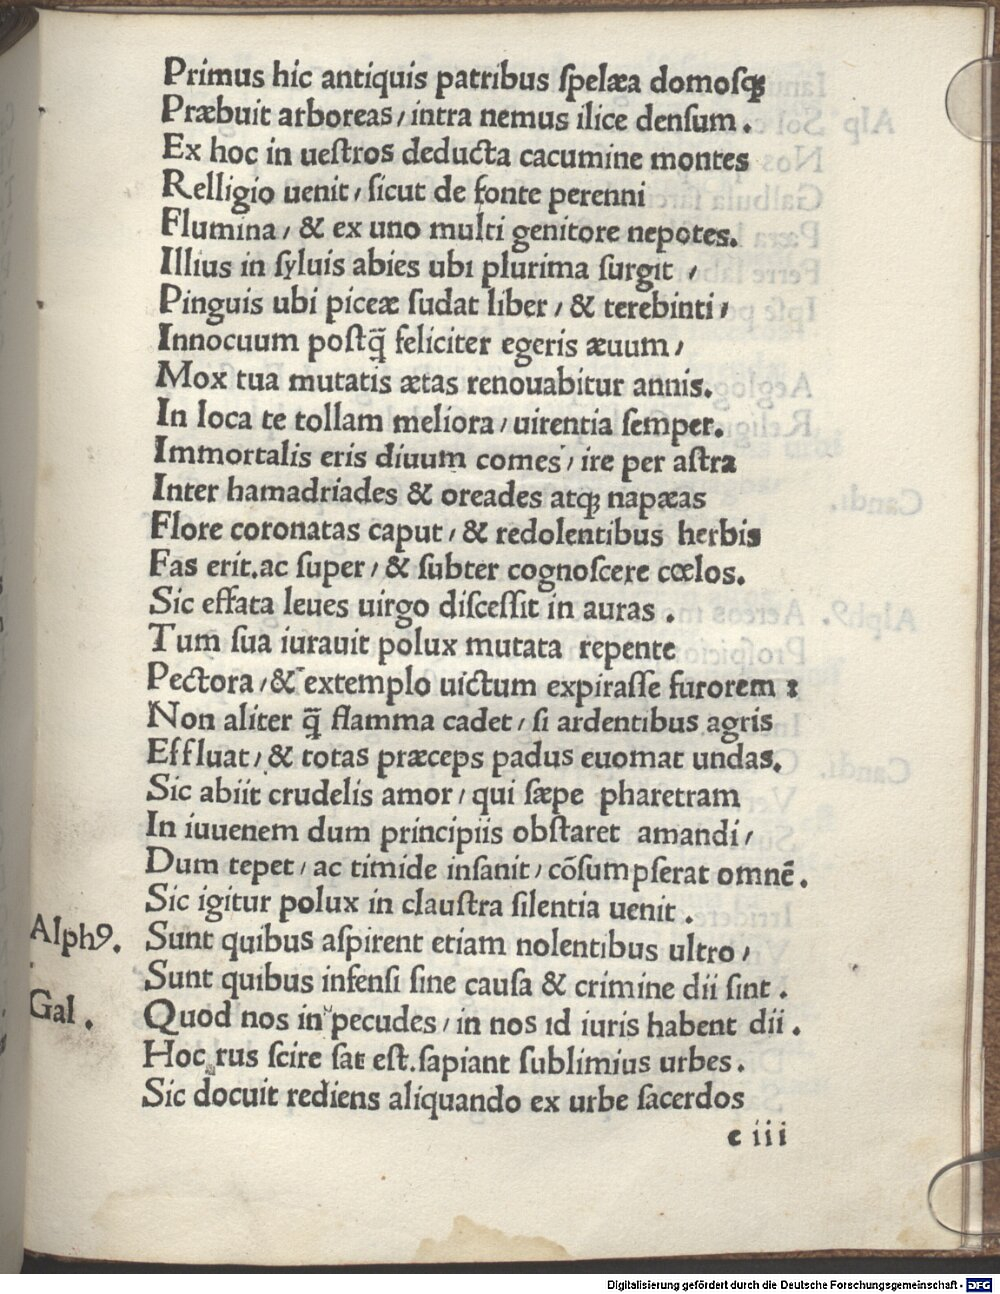 Primus hic antiquis patribus ſpelæa domoſqꝫ
Præbuit arboreas / intra nemus ilice denſum .
Ex hoc in ueſtros deducta cacumine montes
Relligio uenit / ſicut de fonte perenni
Flumina / & ex uno multi genitore nepotes.
Illius in ſyluis abies ubi plurima ſurgit /
Pinguis ubi piceæ ſudat liber / & terebinti /
Innocuum poſtq̃ feliciter egeris æuum /
Mox tua mutatis ætas renouabitur annis.
In loca te tollam meliora / uirentia ſemper.
Immortalis eris diuum comes / ire per aſtra
Inter hamadriades & oreades atqꝫ napæas
Flore coronatas caput / & redolentibus herbis
Fas erit.ac ſuper / & ſubter cognoſcere cœlos.
Sic effata leues uirgo diſceſſit in auras .
Tum ſua iurauit polux mutata repente
Pectora / & extemplo uictum expiraſſe furorem :
Non aliter q̃ flamma cadet / ſi ardentibus agris
Effluat / & totas præceps padus euomat undas.
Sic abiit crudelis amor / qui ſæpe pharetram
In iuuenem dum principiis obſtaret amandi /
Dum tepet / ac timide inſanit / cõſumpſerat omnẽ.
Sic igitur polux in clauſtra ſilentia uenit .
Alphꝰ. Sunt quibus aſpirent etiam nolentibus ultro /
Sunt quibus infenſi ſine cauſa & crimine dii ſint .
Gal . Quod nos in pecudes / in nos id iuris habent dii .
Hoc rus ſcire ſat eſt.ſapiant ſublimius urbes.
Sic docuit rediens aliquando ex urbe ſacerdos
c iii
Digitalisierung gefördert durch die Deutsche Forschungsgemeinschaft - DFG